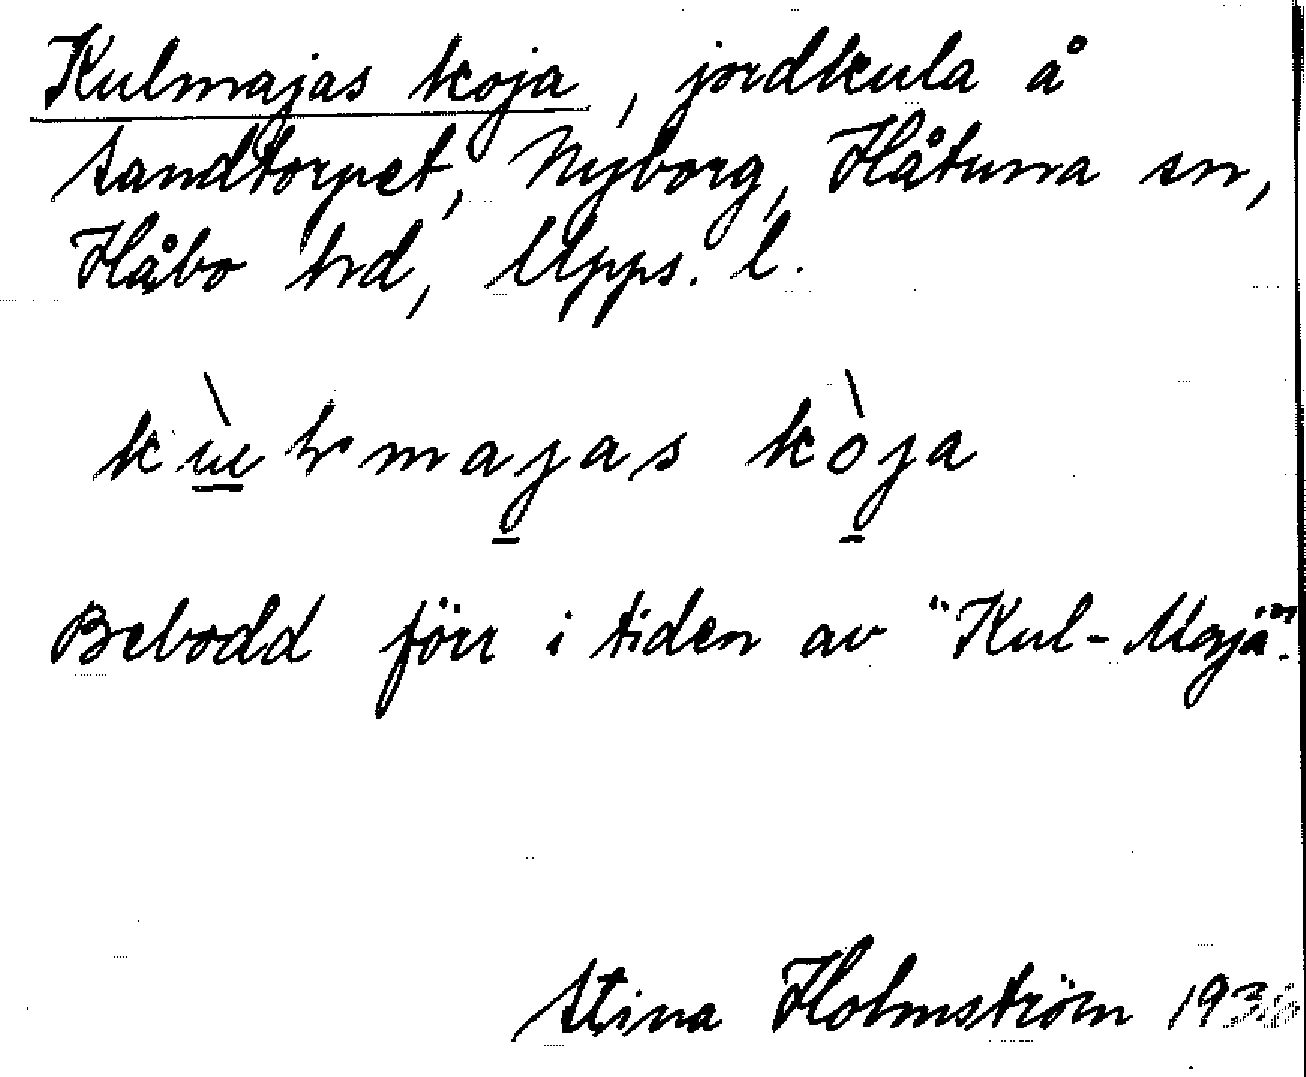 Kulmajas koja, jordkula å
Sandtorpet, Nyborg, Håtuna sn,
Håbo hd, Upps. l.
Bebodd förr i tiden av "Kul-Maja".
Stina Holmström